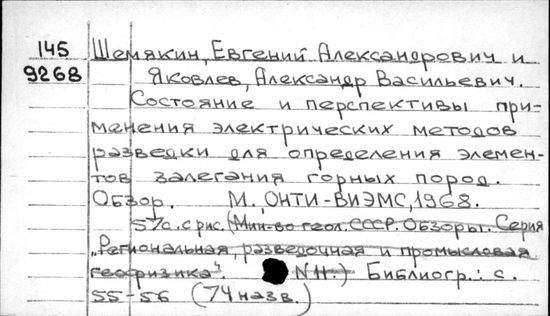 145 Шемякин, Евгений Александрович и
9268 Яковлев, Александр Васильевич.
Состояние и перспективы при-
менения электрических методов
разведки для определения элемен-
тов залегания горных пород.
Обзор. М., ОНТИ-ВИЭМС, 1968.
57с. с рис. (Мин-во геол. СССР. Обзоры. Серия
"Региональная, разведочная и промысловая
геофизика". N 11.) Библиогр.: с.
55-56 (74 назв.)